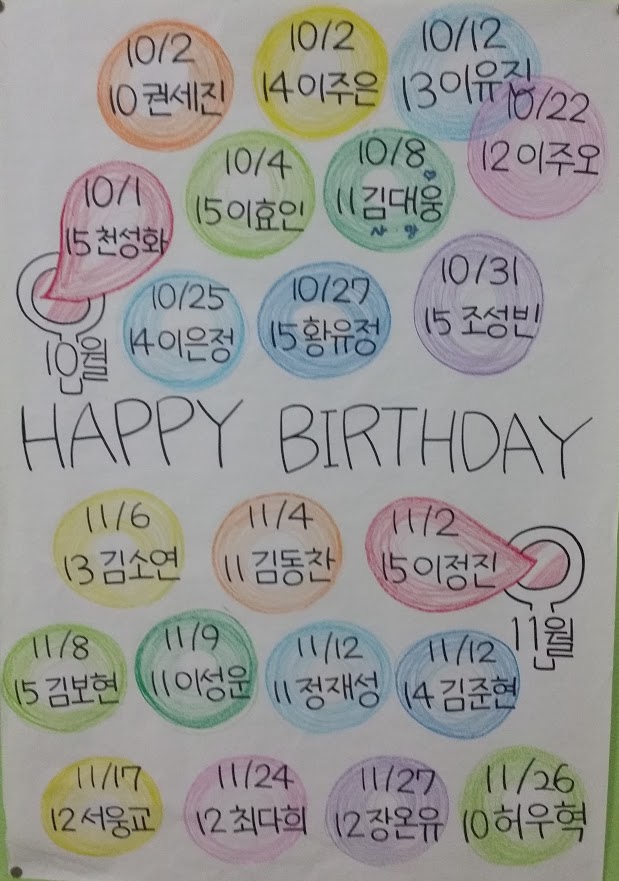 10/2
10 권세진
10/2
14 이주은
10/12
13 이유진
10/22
12 이주오
10/1
15 천성화
10/4
15 이효인
10/8
11 김대웅
사 망
10월
10/25
14 이은정
10/27
15 황유정
10/31
15 조성빈
HAPPY BIRTHDAY
11/6
13 김소연
11/4
11 김동찬
11/2
15 이정진
11월
11/8
15 김보현
11/9
11 이성운
11/12
11 정재성
11/12
14 김준현
11/17
12 서웅교
11/24
12 최다희
11/27
12 장온유
11/26
10 허우혁